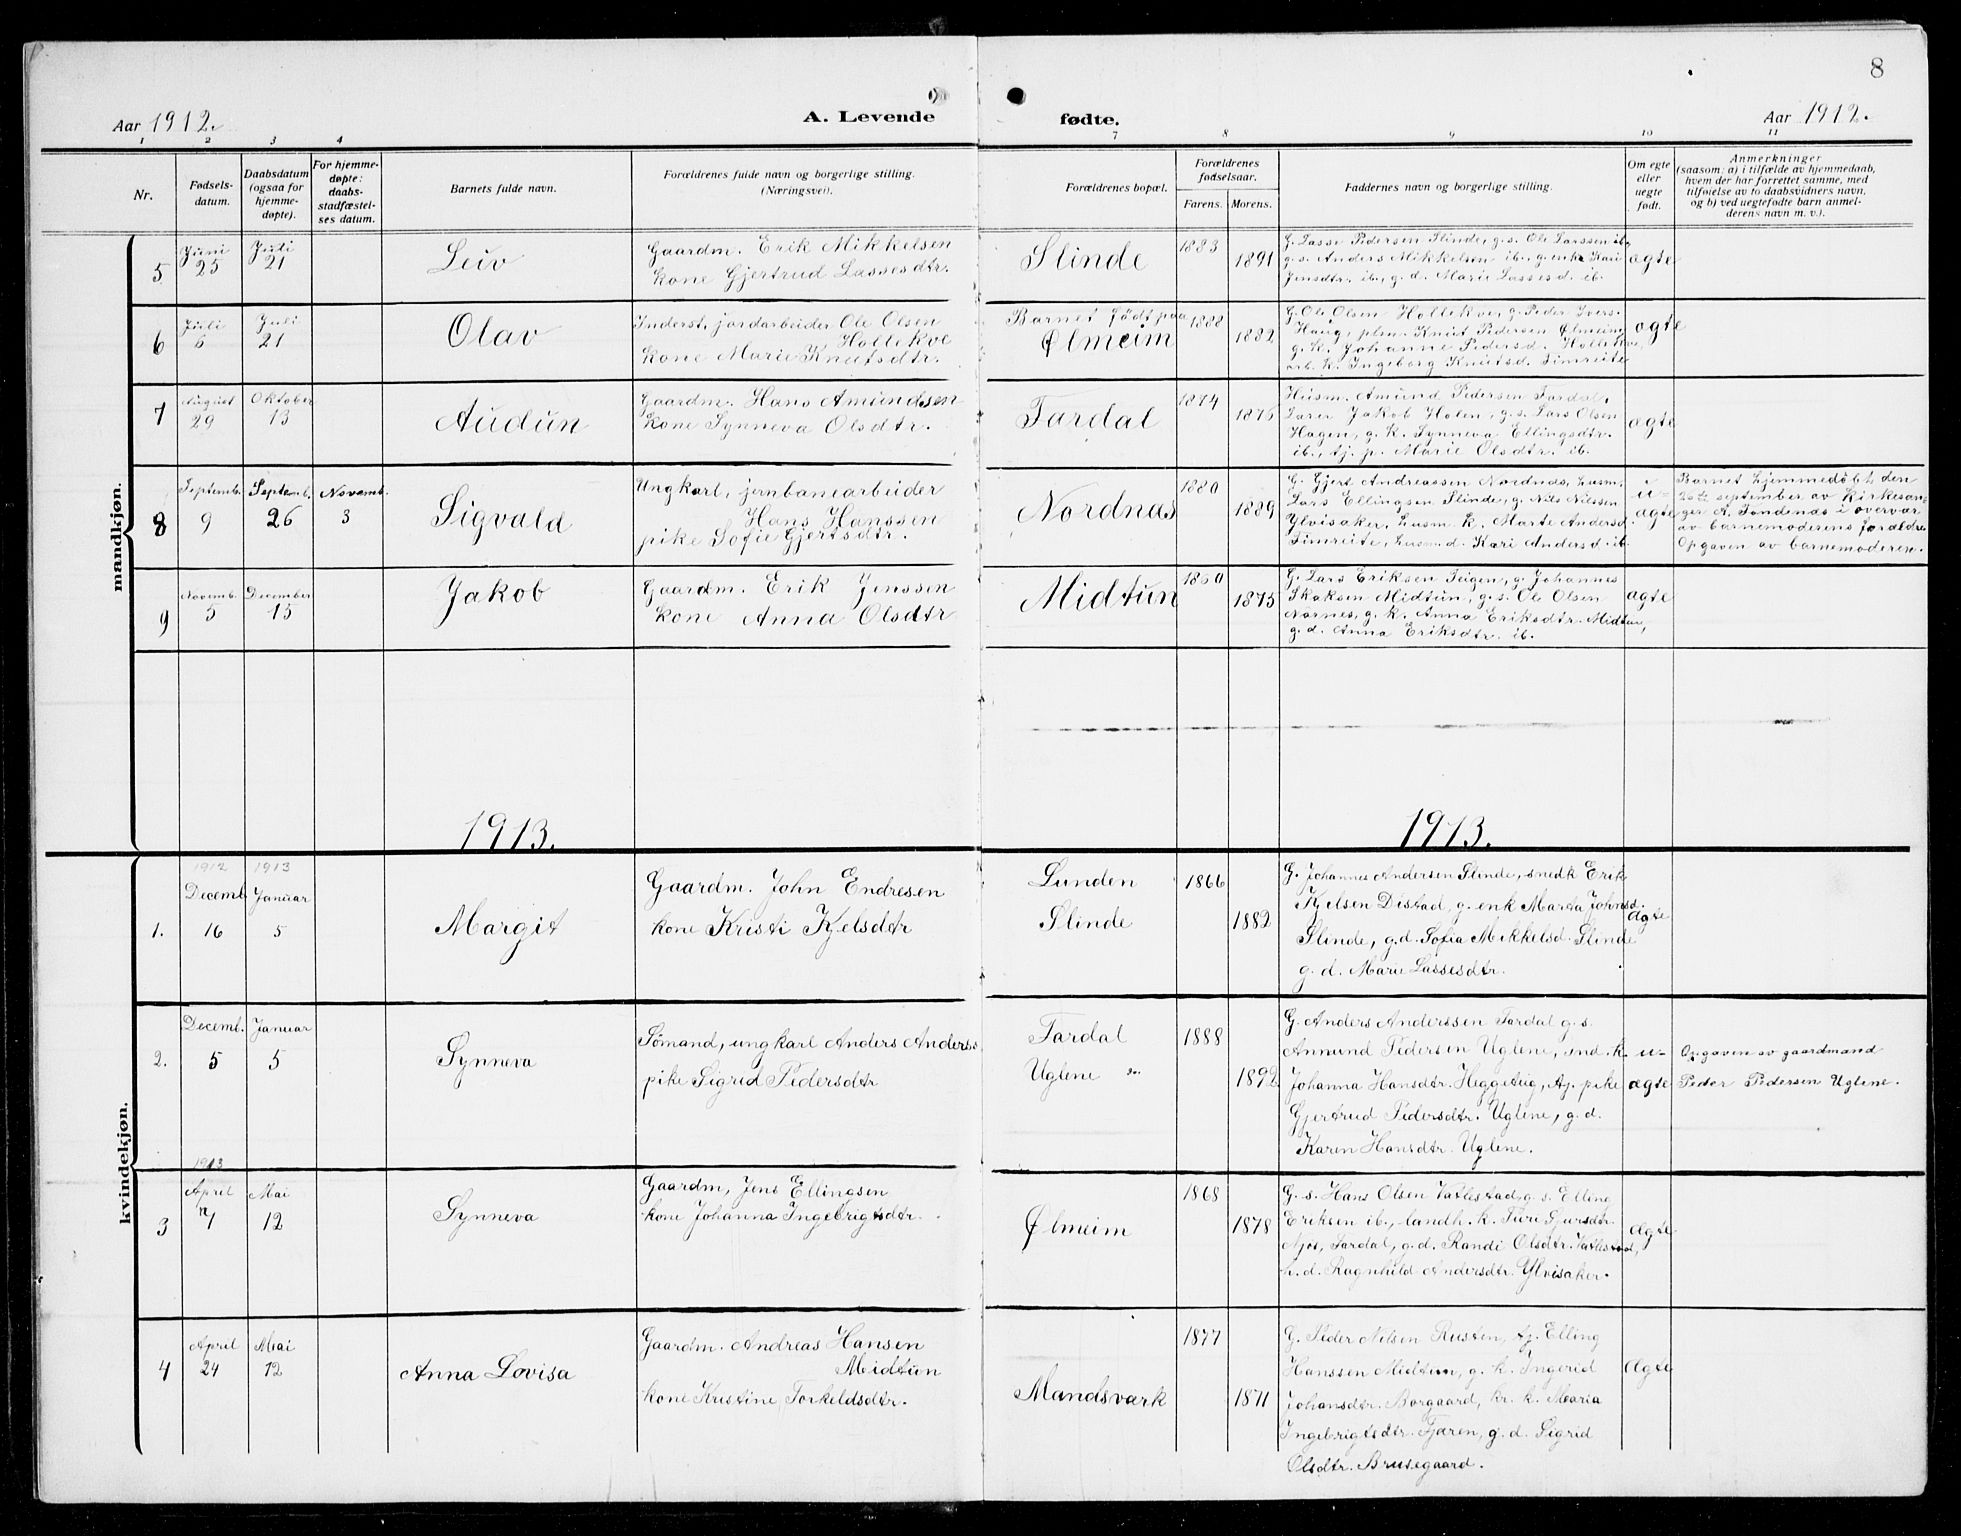 8
Aar 1912.
A. Levende
fødte.
Aar 1912.
1 2 3 4 7 8 9 10 11
Nr.
Fødsels-
datum.
Daabsdatum
(ogsaa for
hjemme-
døpte).
For hjemme-
døpte:
daabs-
stadfæstel-
ses datum.
Barnets fulde navn.
Forældrenes fulde navn og borgerlige stilling.
(Næringsvei).
Forældrenes bopæl.
Forældrenes
fødselsaar.
Farens. Morens.
Faddernes navn og borgerlige stilling.
Om egte
eller
uegte
født.
Anmerkninger
(saasom: a) i tilfælde av hjemmedaab,
hvem der har forrettet samme, med
tilføielse av to daabsvidners navn,
og b) ved uegtefødte barn anmel-
derens navn m. v.).
mandkjøn.
5
Juni
25
Juli
21
Leiv
Gaardm. Erik Mikkelsen
kone Gjertrud Lassesdtr.
Slinde
1883
1891
G. Lasse Pedersen Slinde, g.s. Ole Larssen ib.,
g.s. Anders Mikkelsen ib., g. enke Kari
Jensdtr. ib., g.d. Marie Lassesd. ib.
ægte
6
Juli
6
Juli
21
Olav
Inderst, jordarbeider Ole Olsen
Hollekve
kone Marie Knutsdtr.
Barnet født paa
Ølmeim
1888
1882
G. Ole Olsen Hollekve, g. Peder Ivers.
Haug, plm. Knut Pedersen Ølmeim,
g.k. Johanne Pedersd. Hollekve,
arb. k. Ingeborg Knutsd. Simreite
ægte
7
August
29
Oktober
13
Audun
Gaardm. Hans Amundsen
kone Synneva Olsdtr.
Fardal
1874
1876
Husm. Amund Pedersen Fardal,
Lærer Jakob Holen, g.s. Lars Olsen
Hagen, g.k. Synneva Ellingsdtr.
ib., tj. p. Marie Olsdtr. ib.
ægte
8
Septemb.
9
Septemb.
26
Novemb.
3
Sigvald
Ungkarl, jernbanearbeider
Hans Hanssen
pike Sofie Gjertsdtr.
Nordnas
1880
1889
G. Gjert Andreassen Nordnas, husm.
Lars Ellingsen Slinde, g. Nils Nilssen
Ylvisaker, husm. k. Marte Andersd.
Simreite, husm. d. Kari Andersd. ib.
u-
ægte
Barnet hjemmedøbt den
26de september av kirkesan-
ger A. Tøndenas i overvær
av barnemoderens forældre
Opgaven av barnemoderen.
9
Novemb.
5
December
15
Jakob
Gaardm. Erik Jenssen
kone Anna Olsdtr
Midtun
1860
1875
G. Lars Eriksen Teigen, g. Johannes
Skaksen Midtun, g.s. Ole Olsen
Nornes, g.k. Anna Eriksdtr. Midtun,
g.d. Anna Eriksdtr. ib.
ægte
1913.
1913.
kvindekjøn.
1.
1912
Decemb.
16
1913
Januar
5
Margit
Gaardm. John Endresen
kone Kristi Kjelsdtr
Lunden
Slinde
1866
1882
G. Johannes Andersen Slinde, snedk Erik
Kjelsen Distad, g. enk Marta Johnsd.
Slinde, g.d. Sofia Mikkelsd. Slinde
g.d. Marie Lassesdtr.
ægte
2.
Decemb.
5
Januar
5
Synneva
Sømand, ungkarl Anders Anderss
pike Sigrid Pedersdtr
Fardal
Uglene
1888
1892
G. Anders Anderssen Fardal g.s.
Amund Pedersen Uglene, snd. k.
Johanna Hansdtr. Heggetug, tj. pike
Gjertrud Pedersdtr. Uglene, g.d.
Karen Hansdtr. Uglene.
u-
ægte
Opgaven av gaardmand
Peder Pedersen Uglene.
3
1913
April
7
Mai
12
Synneva
Gaardm, Jens Ellingsen
kone Johanna Ingebrigtsdtr.
Ølmeim
1868
1878
G.s. Hans Olsen Vatlestad, g.s. Elling
Eriksen ib., landh. k. Turi Gjursdtr.
Njøs, Sardal, g.d. Randi Olsdtr. Vatlestad,
h.d. Ragnhild Andersdtr. Ylvisaker.
ægte
4
April
24
Mai
12
Anna Lovisa
Gaardm. Andreas Hansen
Midtun
kone Kristine Torkeldsdtr.
Mandsvark
1877
1871
G. Peder Nilsen Rusten, tj. Elling
Hanssen Midtun, g.k. Ingerid
Johansdtr. Borgaard, kr. k. Maria
Ingebrigtsdtr. Fjæren, g.d. Sigrid
Olsdtr. Brusegaard.
ægte